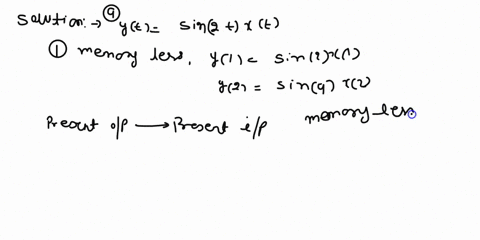 Solution:→ (a) y(t) = sin(2t) x(t)
① memory less, y(1) = sin(2) x(1)
y(2) = sin(4) x(2)
Present o/p ⟶ Present i/p memory less